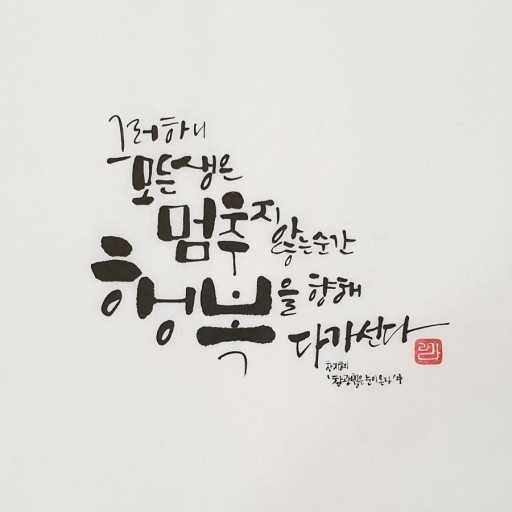 그러하니
모든 생은
멈추지
않는 순간
행복을 향해
다가선다